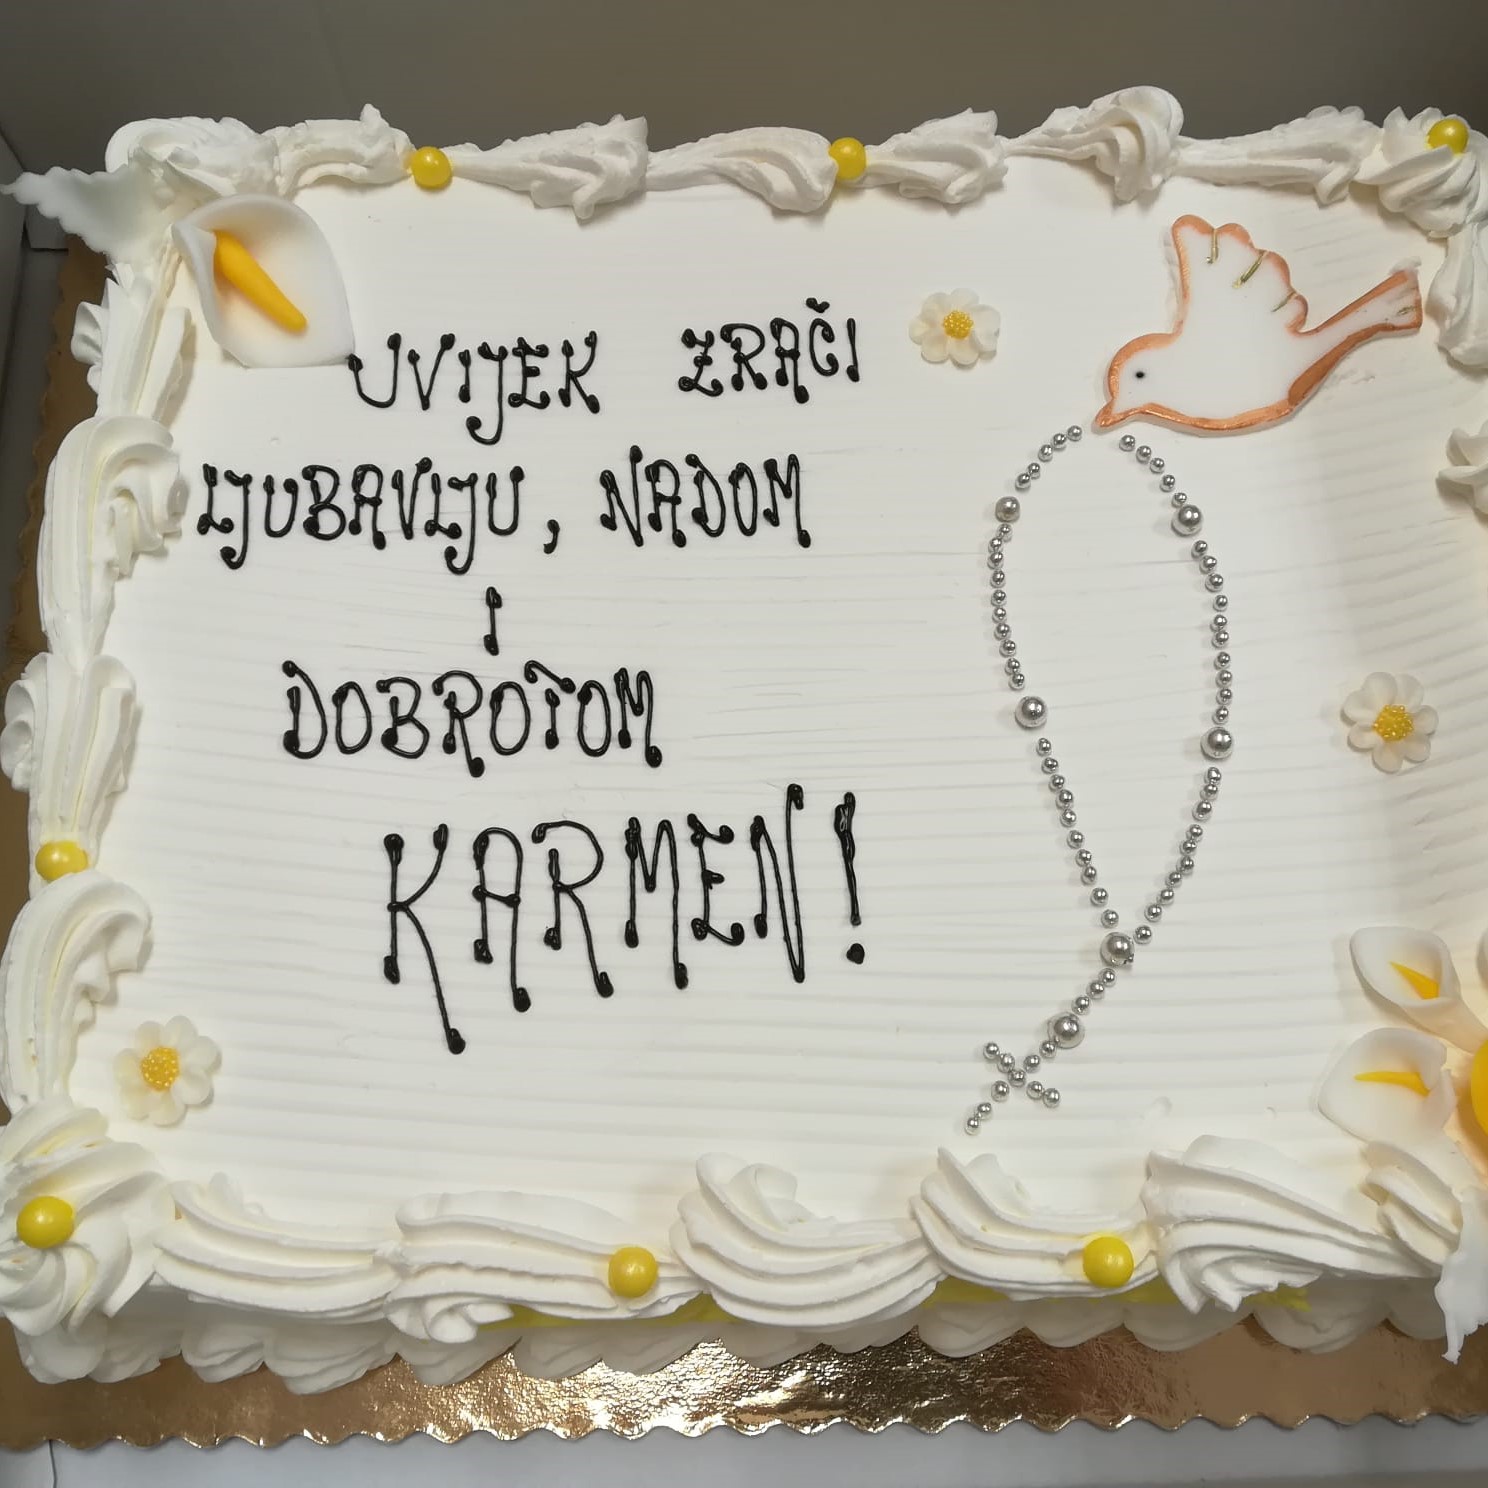 UVIJEK ZRAČI
LJUBAVLJU, NADOM
I
DOBROTOM
KARMEN!